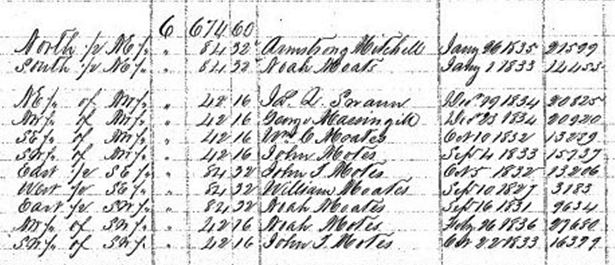 6 674 60
North 1/2 NE 1/4 " 84 32 Armstrong Mitchell Jany 26 1835 21599
South 1/2 NE 1/4 " 84 32 Noah Moats Jany 1 1833 14453
NE 1/4 of NW 1/4 " 42 16 Swann Decr 19 1834 20825
NW 1/4 of NW 1/4 " 42 16 George Massingill Decr 23 1834 20920
SE 1/4 of NW 1/4 " 42 16 Wm C Moates Oct 10 1832 13289
SW 1/4 of NW 1/4 " 42 16 John Motes Sept 4 1833 15737
East 1/2 SE 1/4 " 84 32 John T Motes Oct 5 1832 13206
West 1/2 SE 1/4 " 84 32 William Moates Sept 10 1827 3183
East 1/2 SW 1/4 " 84 32 Noah Moates Sept 16 1831 9634
NW 1/4 of SW 1/4 " 42 16 Noah Motes Feby 26 1836 27680
SW 1/4 of SW 1/4 " 42 16 John T Motes Oct 22 1833 16399